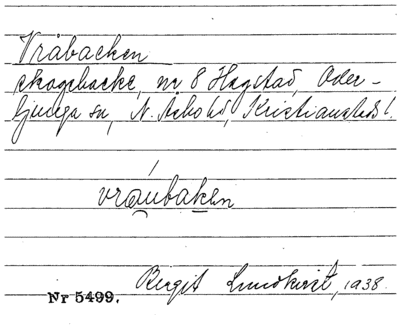 Vråbacken
skogsbacke, nr 8 Hagstad, Oder-
ljunga sn, N. Åsbo hd, Kristianstads l.
vraubaken
Birgit Lundkvist, 1938.
Nr 5499.